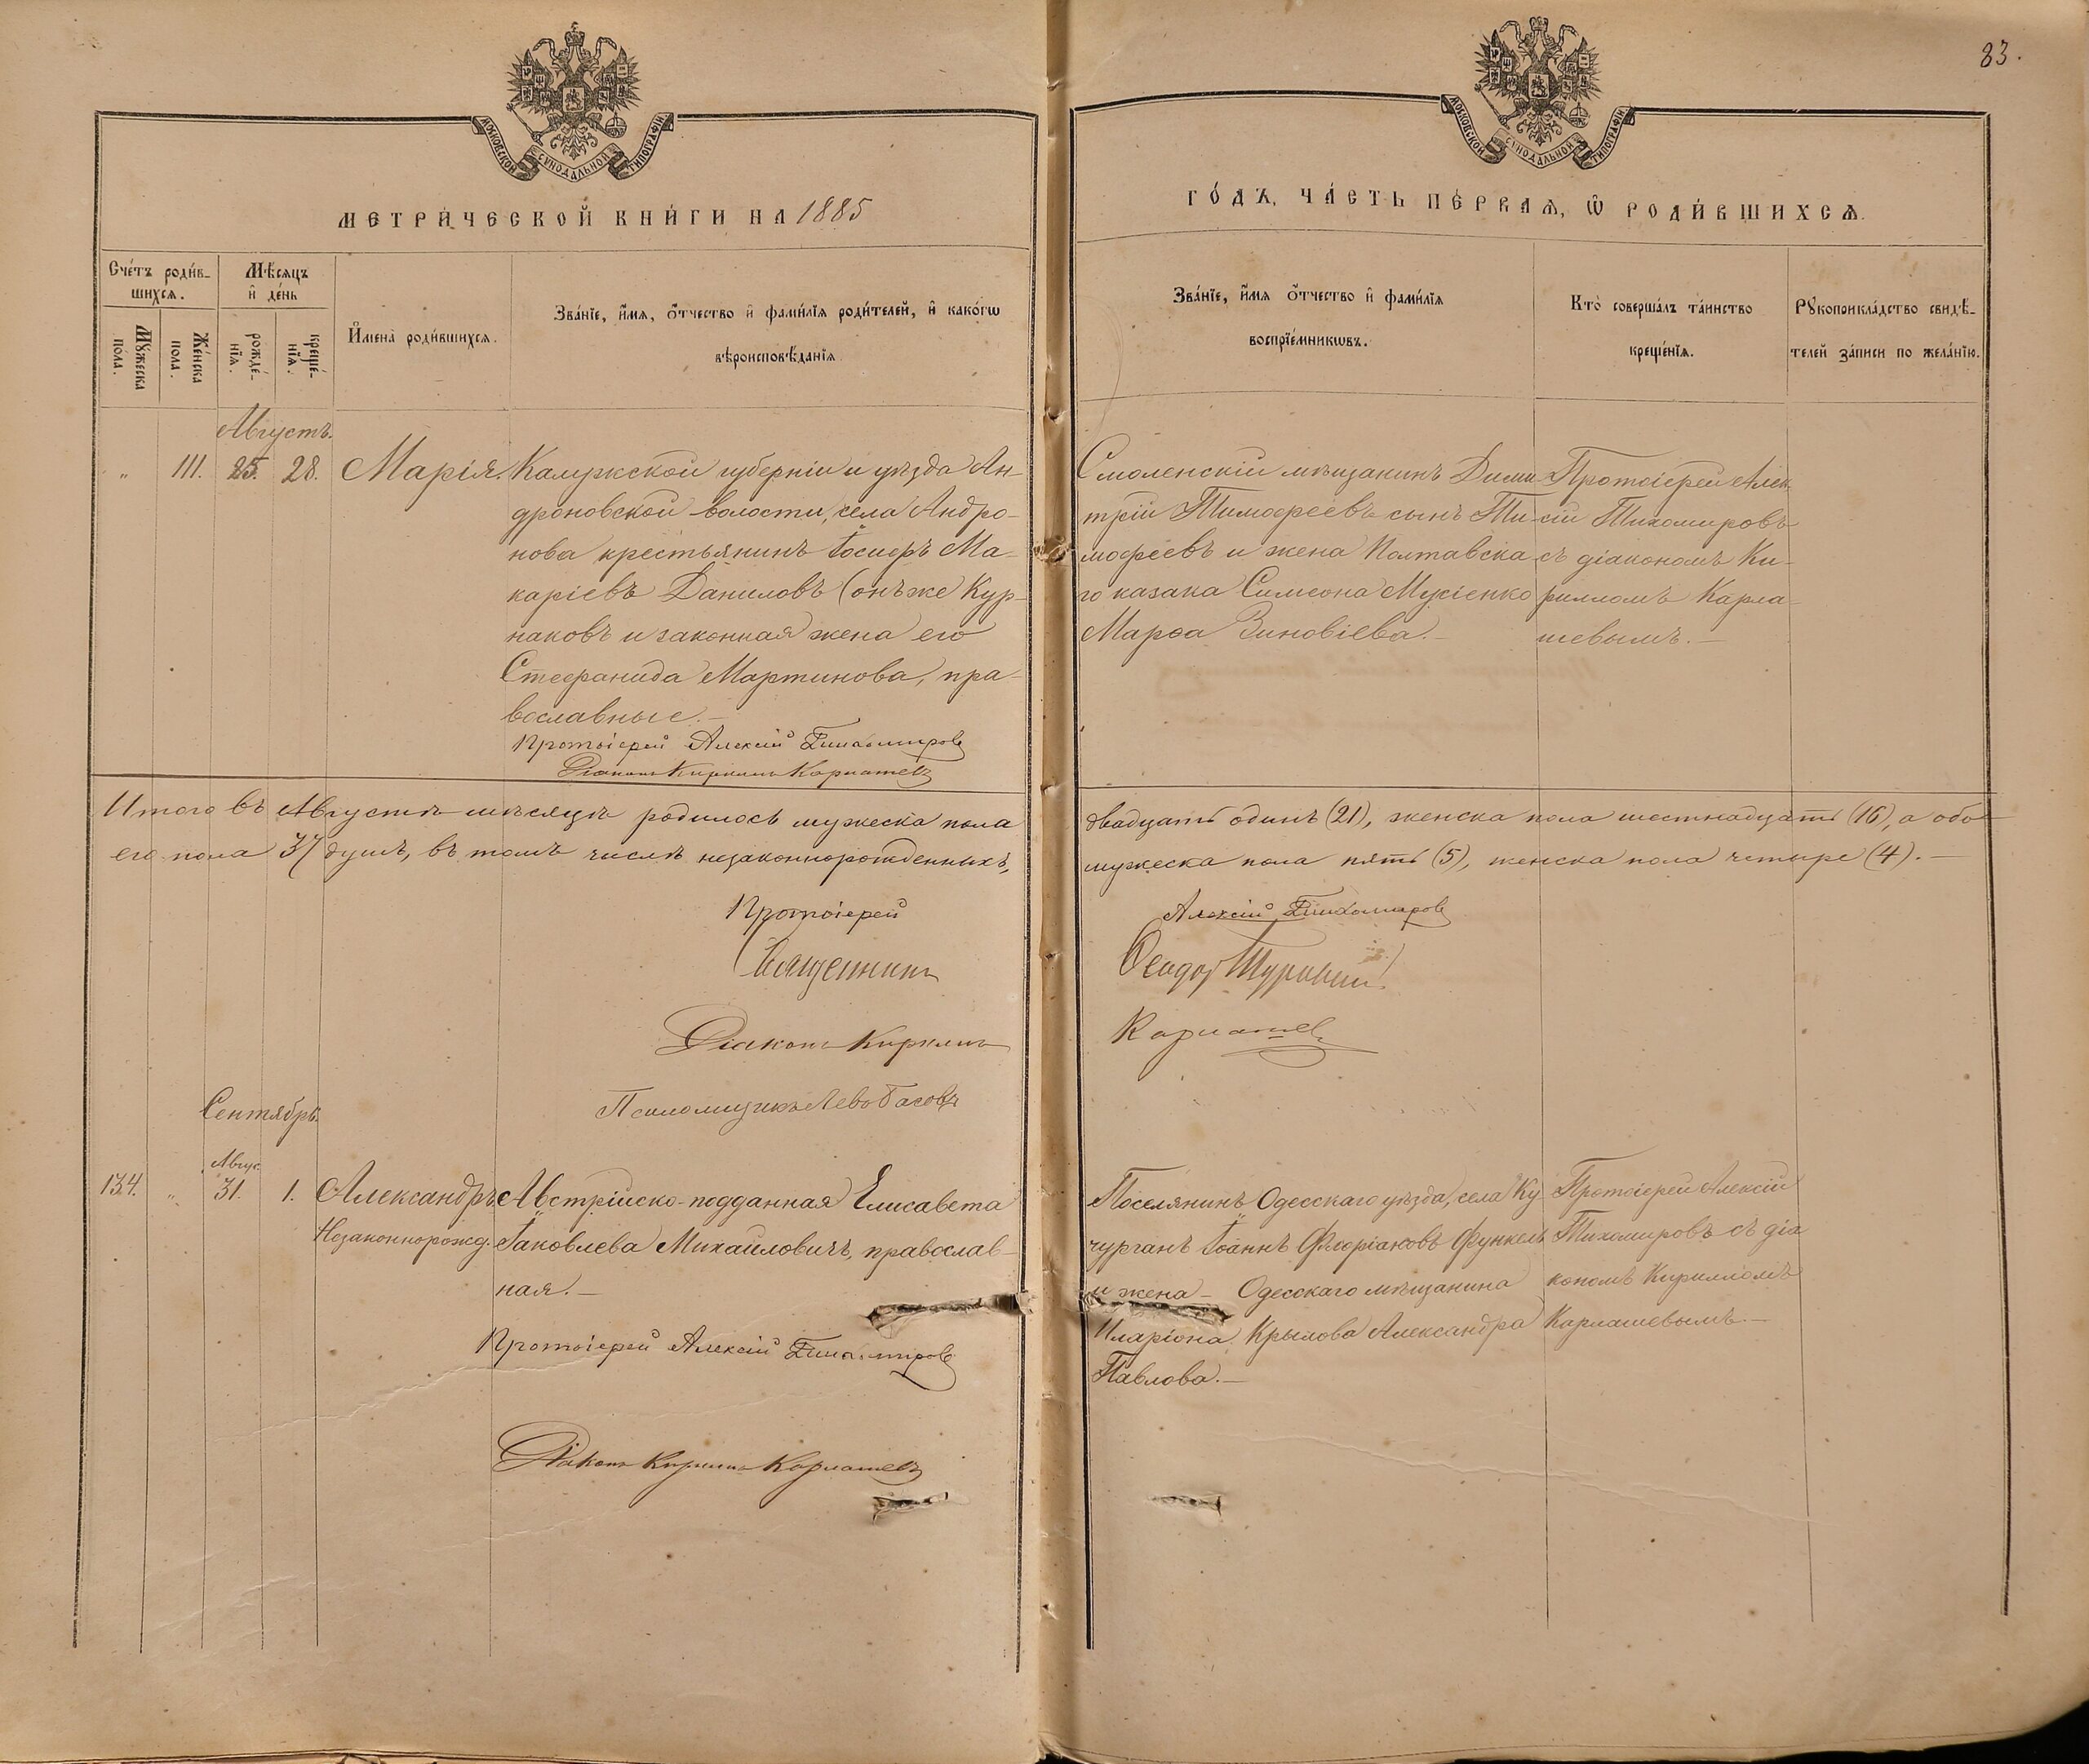 83.
МОСКОВСКОЙ СѴНОДАЛЬНОЙ ТИПОГРАФІИ
МОСКОВСКОЙ СѴНОДАЛЬНОЙ ТИПОГРАФІИ
МЕТРИ́ЧЕСКОЙ КНИ́ГИ НА 1885
ГО́ДЪ, ЧА́СТЬ ПЕ́РВАѦ, Ѿ РОДИ́ВШИХСѦ.
Сче́тъ роди́в-
шихсѧ.
Мѣ́сѧцъ
и҆ де́нь
Мꙋ́жеска
пола.
Же́нска
пола.
рожде́-
нїѧ.
креще́-
нїѧ.
И҆мена̀ роди́вшихсѧ.
Зва́нїе, и҆́мѧ, ѻ҆́тчество и҆ фами́лїѧ роди́телей, и҆ како́гѡ
вѣроисповѣ́данїѧ.
Зва́нїе, и҆́мѧ ѻ҆́тчество и҆ фами́лїѧ
воспрїе́мникѡвъ.
Кто̀ соверша́лъ та́инство
креще́нїѧ.
Рꙋкоприкла́дство свидѣ́-
телей за́писи по жела́нїю.
Августъ.
„ 111. 25. 28. Марія. Калужской губерніи и уѣзда Ан-
дроновской волости, села Андро-
нова крестьянинъ Іосифъ Ма-
каріевъ Даниловъ (онъ же Кур-
наковъ и законная жена его
Стефанида Мартинова, пра-
вославные.-
Протоіерей Алексій Тихомировъ
Діаконъ Кириллъ Карлашевъ
Смоленскій мѣщанинъ Дими-
трій Тимофеевъ сынъ Ти-
мофеевъ и жена Полтавска-
го казака Симеона Мусіенко
Марѳа Зиновіева.-
Протоіерей Алек-
сій Тихомировъ
съ діакономъ Ки-
рилломъ Карла-
шевымъ.-
Итого въ Августѣ мѣсяцѣ родилось мужеска пола двадцать одинъ (21), женска пола шестнадцать (16), а обо-
его пола 37 душъ, въ томъ числѣ незаконнорожденныхъ, мужеска пола пять (5), женска пола четыре (4).-
Протоіерей Алексій Тихомировъ
Священникъ Ѳеодоръ
Діаконъ Кириллъ Карлашевъ
Псаломщикъ Левъ
Сентябрь.
Авгус.
134. „ 31. 1. Александръ
Незаконнорожд.
Австрійско-подданная Елисавета
Іаковлева Михайловичъ, православ-
ная.-
Протоіерей Алексій Тихомировъ
Діаконъ Кириллъ Карлашевъ
Поселянинъ Одесскаго уѣзда, села Ку-
чурганъ Іоаннъ Флоріановъ Функель
и жена - Одесскаго мѣщанина
Иларіона Крылова Александра
Павлова.-
Протоіерей Алексій
Тихомировъ съ діа-
кономъ Кирилломъ
Карлашевымъ.-